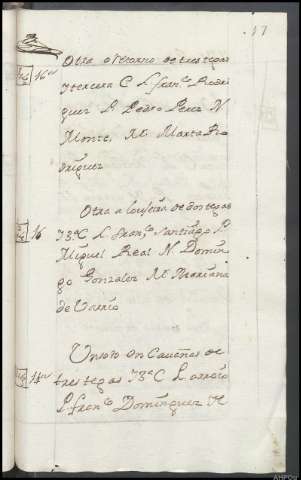 17
Otra o Retorno de tres tegas
y tercera C L franco Rodri
guez P Pedro Perez N
Monte, M Marta Ro
driguez
16
Otra a louseira de dos tegas
73aC L franco Santiago P
Miguel Real N Domin
go Gonzalez M Mariana
de Varrio
Un soto en Caveñas de
tres tegas 73aC L
P franco Dominguez N